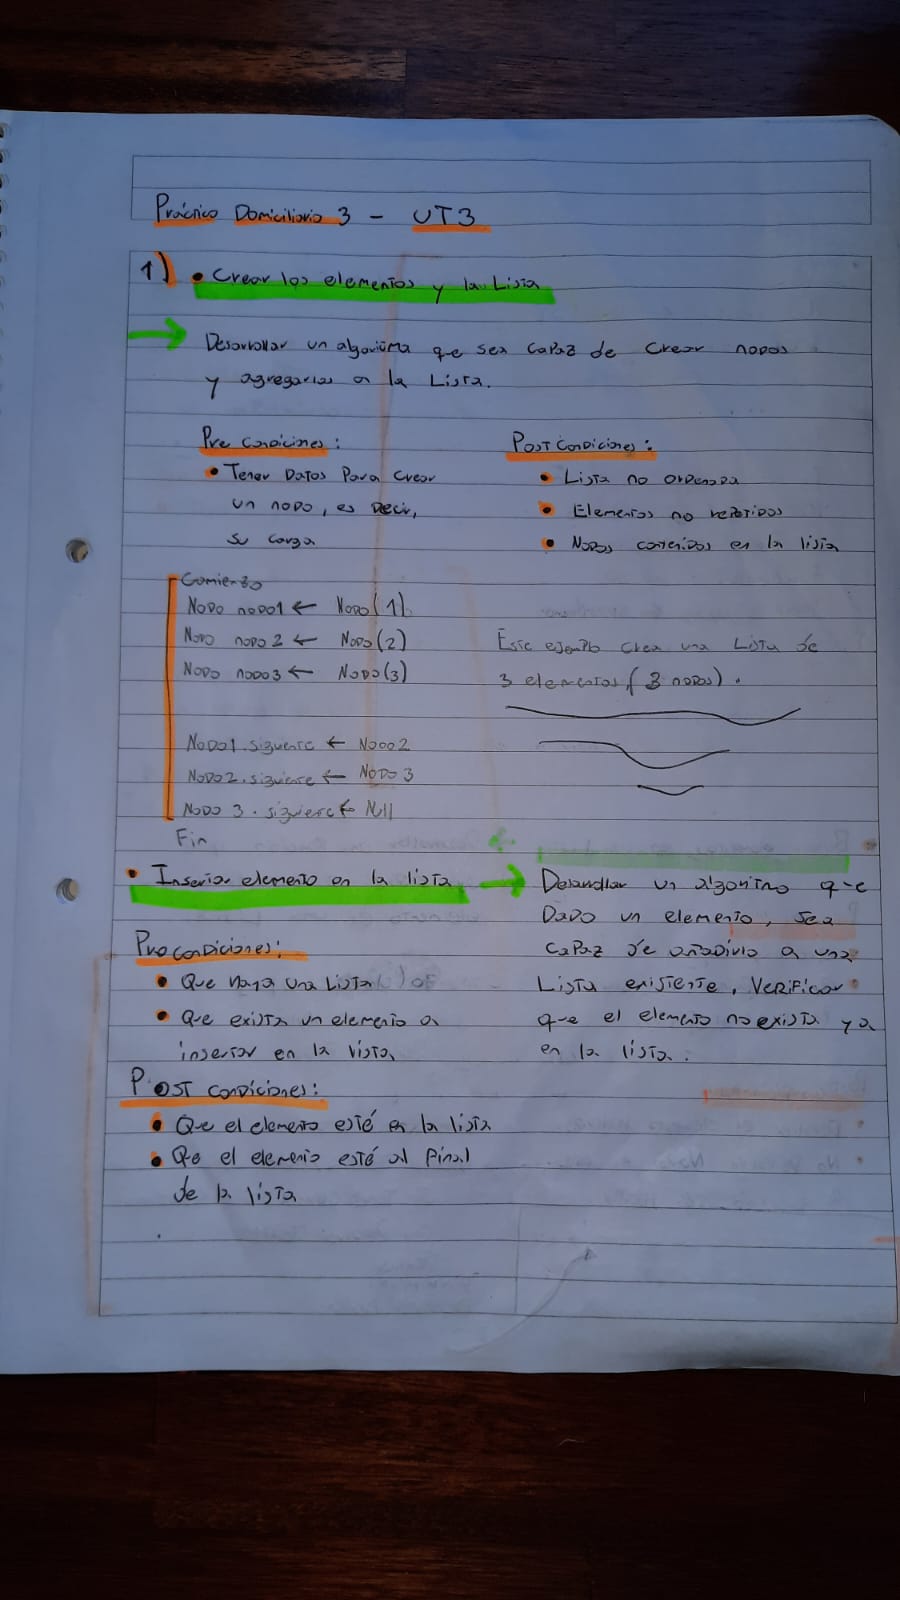 Práctico Domiciliario 3 - UT3
1) • Crear los elementos y la Lista
→ Desarrollar un algoritmo que sea capaz de crear nodos
y agregarlos a la Lista.
Pre condiciones:
• Tener Datos Para crear
un nodo, es Decir,
su carga
Post condiciones:
• Lista no ordenada
• Elementos no repetidos
• Nodos contenidos en la lista
Comienzo
Nodo nodo1 ← Nodo(1)
Nodo nodo2 ← Nodo(2)
Nodo nodo3 ← Nodo(3)
Nodo1.siguiente ← Nodo2
Nodo2.siguiente ← Nodo3
Nodo3.siguiente ← Null
Fin
Este ejemplo crea una Lista de
3 elementos (3 nodos).
• Insertar elemento en la lista →
Desarrollar un algoritmo que
Dado un elemento, sea
capaz de añadirlo a una
Lista existente, Verificar
que el elemento no exista ya
en la lista.
Precondiciones:
• Que haya una Lista
• Que exista un elemento a
insertar en la lista
Post condiciones:
• Que el elemento esté en la lista
• Que el elemento esté al final
de la lista